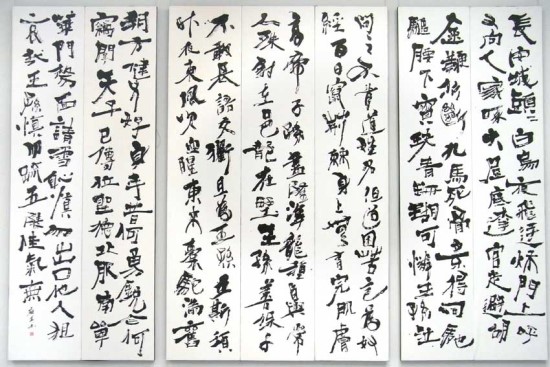 長安城頭頭白烏夜飛延秋門上呼
又向人家啄大屋底達官走避胡
金鞭折斷九馬死骨肉不得同馳
驅腰下寶玦青珊瑚可憐王孫泣
問之不肯道姓名但道困苦乞為奴
經百日竄荊棘身上無有完肌膚
高帝子孫盡隆準龍種自與常
人殊豺狼在邑龍在野王孫善保千
不敢長語交衢且為王孫立斯須
昨夜東風吹血腥東來橐駝滿舊
朔方健兒好身手昔何勇銳今何
竊聞天子已傳位聖德北服南單
花門剺面請雪恥慎勿出口他人狙
哀哉王孫慎勿疏五陵佳氣無